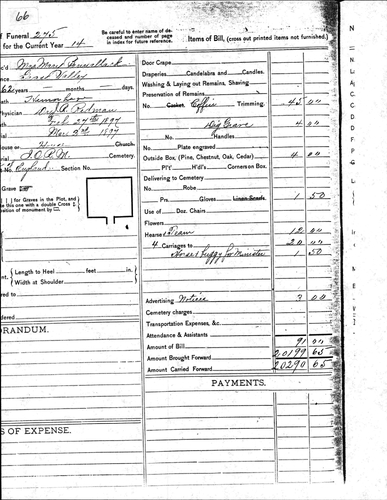 66
Be careful to enter name of de-
ceased and number of page
in index for future reference.
of Funeral 275
for the Current Year 14
Items of Bill, (cross out printed items not furnished.)
Mrs Mary
Valley
62 years - months - days.
Physician Redman
Feb 27th 1897
Mar 2nd 1897
House or House Church.
I.O.R.M. Cemetery.
of England Section No.
Grave
for Graves in the Plot, and
use this one with a double Cross
position of monument by
Length to Heel feet in.
Width at Shoulder
dered
ORANDUM.
S OF EXPENSE.
Door Crape
Draperies Candelabra and Candles.
Washing & Laying out Remains, Shaving.
Preservation of Remains
No. Casket. Coffin Trimming. 45 00
Dig Grave 4 00
No. Handles
Plate engraved
Outside Box, (Pine, Chestnut, Oak, Cedar) 4 00
Pl't H'dl's Corners on Box.
Delivering to Cemetery
No. Robe
Prs. Gloves Linen Scarfs. 1 50
Use of Doz. Chairs
Flowers
Hearse Team 12 00
4 Carriages to 20 00
Horse & Buggy for Minister 1 50
Advertising Notice 3 00
Cemetery charges
Transportation Expenses, &c.
Attendance & Assistants
Amount of Bill 91 00
Amount Brought Forward 20199 65
Amount Carried Forward 20290 65
PAYMENTS.